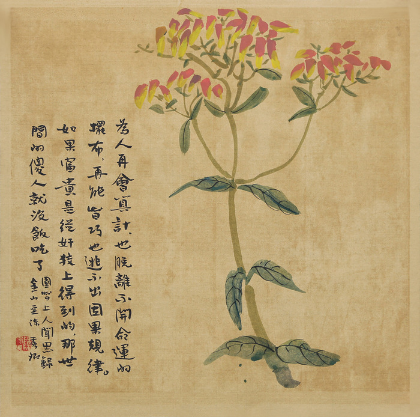 为人再會算計,也脱離不開命運的
擺布,再能皆巧也逃不出因果規律。
如果富貴是從奸狡上得到的,那世
間的傻人就没飯吃了
圓智上人聞思錄